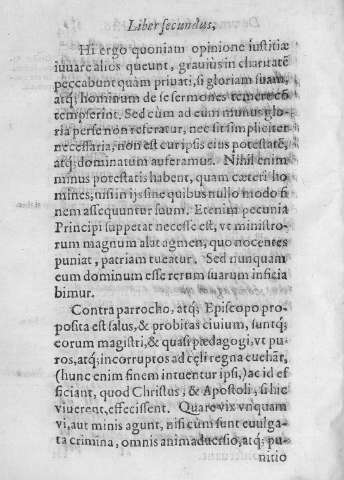 Liber secundus,
Hi ergo quoniam opinione iustitiæ
iuuare alios queunt, grauius in charitatē
peccabunt quàm priuati, si gloriam suam,
atq; hominum de se sermones temere cō
tempserint. Sed cùm ad eum munus glo-
ria per se non referatur, nec sit simpliciter
necessaria, non est cur ipsis eius potestatē,
atq; dominatum auferamus. Nihil enim
minus potestatis habent, quam cæteri ho
mines, nisi in ijs sine quibus nullo modo fi
nem assequuntur suum. Etenim pecunia
Principi suppetat necesse est, vt ministro-
rum magnum alat agmen, quo nocentes
puniat, patriam tueatur. Sed nunquam
eum dominum esse rerum suarum inficia
bimur.
Contra parrocho, atq; Episcopo pro-
posita est salus, & probitas ciuium, suntq;
eorum magistri, & quasi pædagogi, vt pu-
ros, atq; incorruptos ad cęli regna euehāt,
(hunc enim finem intuentur ipsi,) ac id ef
ficiant, quod Christus, & Apostoli, si hic
viuerent, effecissent. Quare vix vnquam
vi, aut minis agunt, nisi cùm sunt euulga-
ta crimina, omnis animaduersio, atq; pu-
nitio